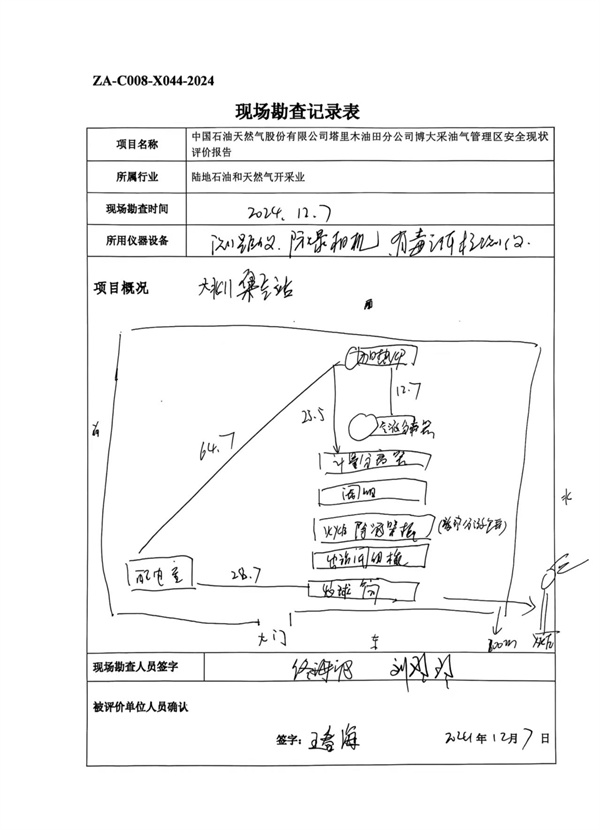 ZA-C008-X044-2024
现场勘查记录表
项目名称
中国石油天然气股份有限公司塔里木油田分公司博大采油气管理区安全现状
评价报告
所属行业
陆地石油和天然气开采业
现场勘查时间
2024.12.7
所用仪器设备
测距仪、防爆相机、有毒气体检测仪.
项目概况
集气站
加热炉
12.7
25.5
气液分离器
64.7
计量分离器
阀组
配电室
28.7
收球筒
大门
东
北
800m
现场勘查人员签字
被评价单位人员确认
签字:
2024年12月7日